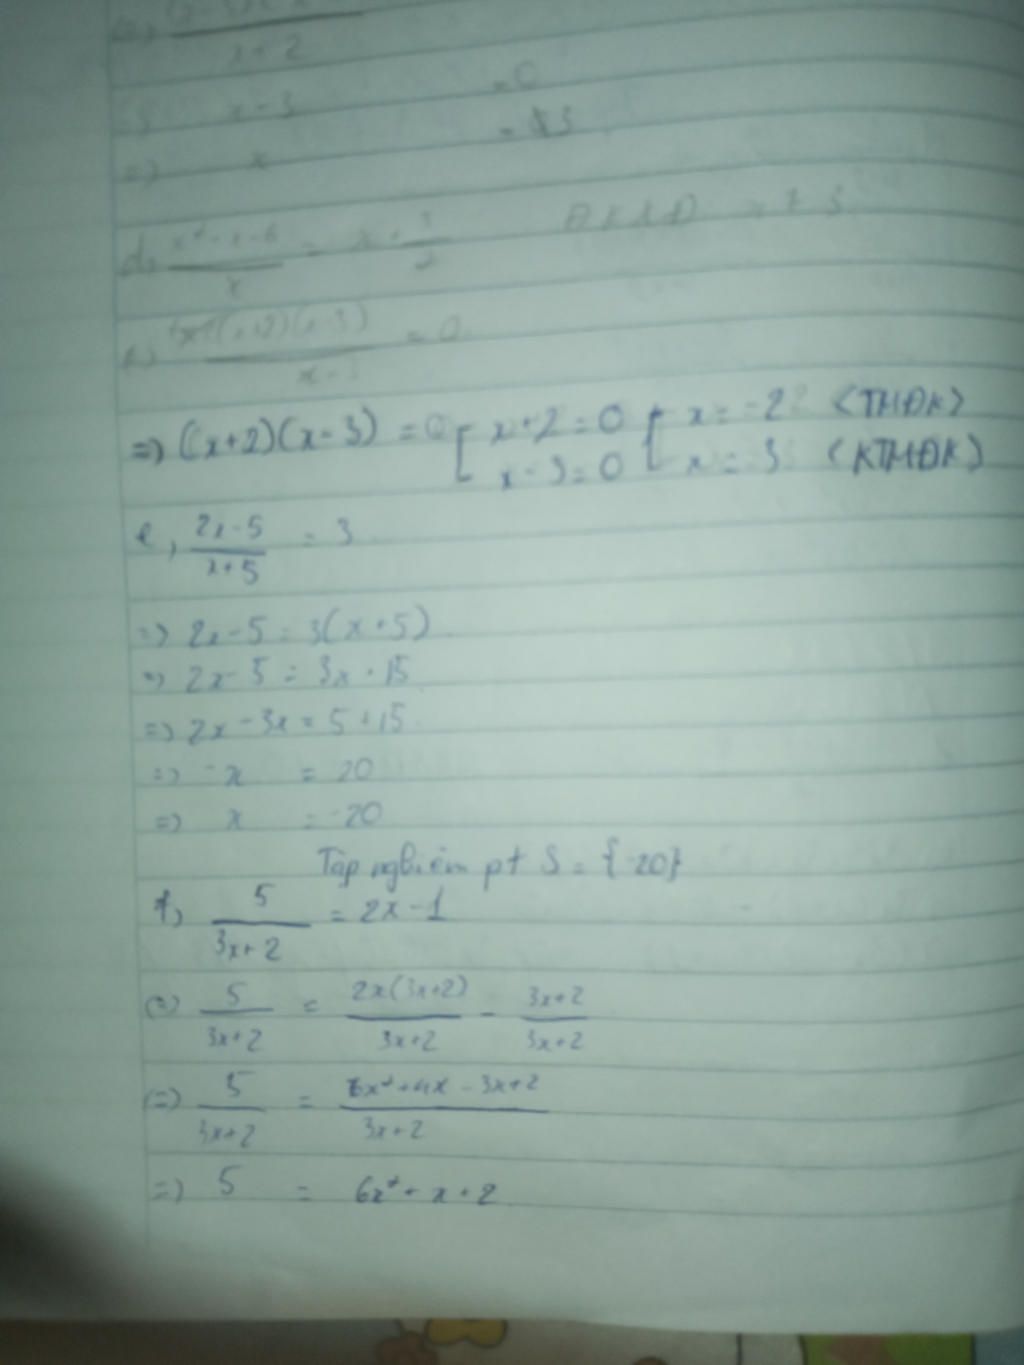 x+2
x-3 = 0
x
d, x²-x-6 / x = x + 3/2 ĐKXĐ x ≠ 3
(x+2)(x-3) / x- = 0
=> (x+2)(x-3) = 0 [ x+2=0 [ x = -2 <TMĐK>
x-3=0 x = 3 (KTMĐK)
e, 2x-5 / x+5 = 3
=> 2x-5 = 3(x+5)
=> 2x-5 = 3x+15
=> 2x-3x = 5+15
=> -x = 20
=> x = -20
Tập nghiệm pt S = {-20}
f, 5 / 3x+2 = 2x-1
(=) 5 / 3x+2 = 2x(3x+2) / 3x+2 - 3x+2 / 3x+2
(=) 5 / 3x+2 = 6x²+4x-3x+2 / 3x+2
=) 5 = 6x²+x+2